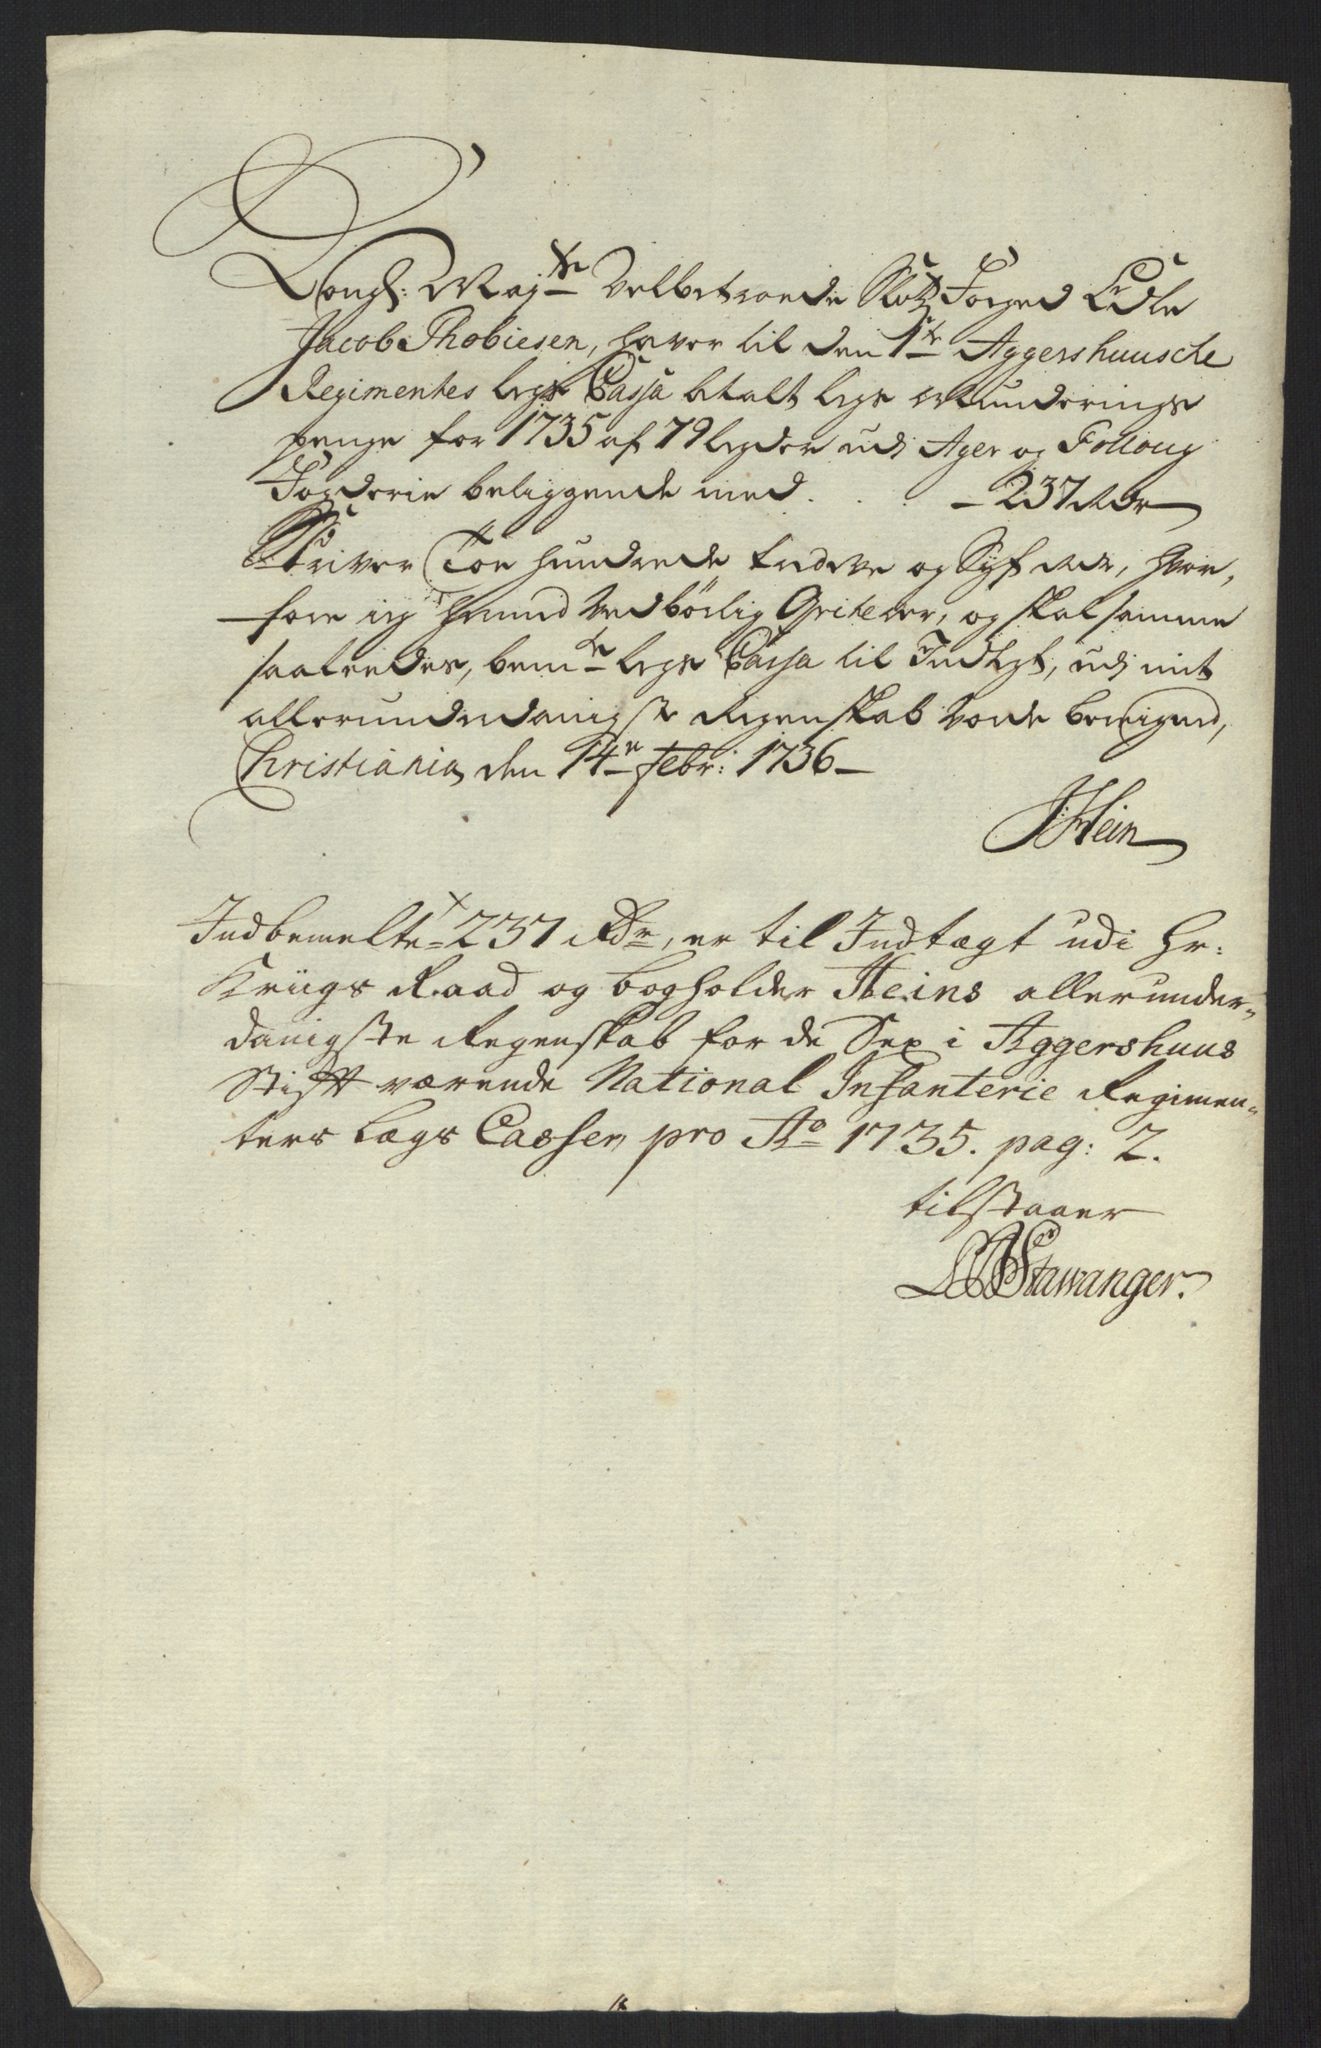 Kongl: Maj:ts Velbetroede Slotz Foged Edle
Jacob Thobiesen, haver til den 1te Aggershuusche
Regimentes legs Cassa betalt legs Munderings
penge for 1735 af 79 legder udj Ager og Folloug
Fogderie beliggende med . . . - 237 Rdr
Skriver Toe hundrede tredeve og Syf Rdr, hvor-
fore ieg hannd Vedbørlig Qviterer, og skal samme
saaledes, bemte legs Cassa til Indtegt, udj mit
allerunderdanigste Regenskab vorde bereigned,
Christiania den 14n Febr: 1736
JHein
Indbemelte 237 Rdr, er til Indtægt udi Hr:
Kriigs Raad og bogholder Heins allerunder-
danigste Regenskab for de Sex i Aggershuus
Stift værende National Infanterie Regimen-
ters Lægs Casser, pro Ao 1735. pag: 2.
tilstaaer
Stawanger.